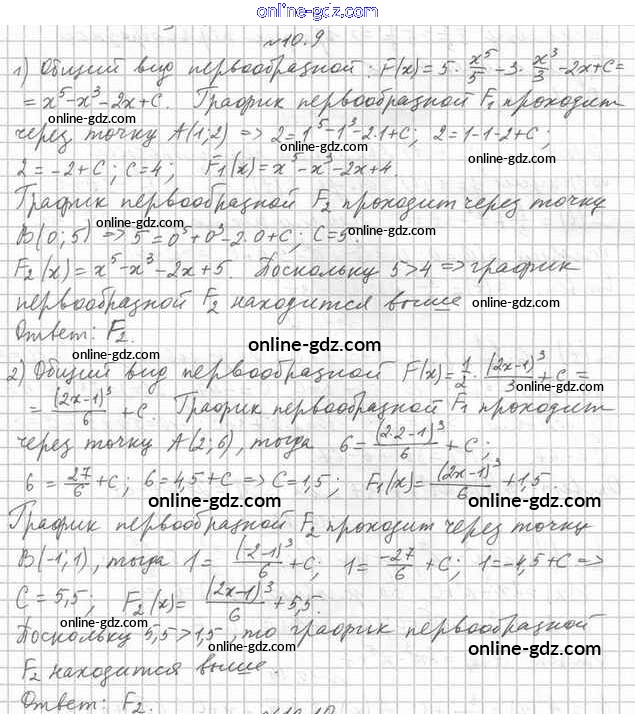 online-gdz.com
№10.9
1) Общий вид первообразной: F(x) = 5 · x⁵/5 - 3 · x³/3 - 2x + C =
= x⁵ - x³ - 2x + C. График первообразной F₁ проходит
online-gdz.com
через точку A(1;2) => 2 = 1⁵ - 1³ - 2·1 + C; 2 = 1 - 1 - 2 + C;
online-gdz.com online-gdz.com
2 = -2 + C; C = 4; F₁(x) = x⁵ - x³ - 2x + 4.
График первообразной F₂ проходит через точку
online-gdz.com online-gdz.com
B(0;5) => 5 = 0⁵ + 0³ - 2·0 + C; C = 5.
F₂(x) = x⁵ - x³ - 2x + 5. Поскольку 5 > 4 => график
первообразной F₂ находится выше online-gdz.com
Ответ: F₂.
online-gdz.com online-gdz.com
2) Общий вид первообразной F(x) = 1/2 · (2x-1)³/3 + C =
online-gdz.com
= (2x-1)³/6 + C. График первообразной F₁ проходит
через точку A(2;6), тогда 6 = (2·2-1)³/6 + C;
online-gdz.com online-gdz.com
6 = 27/6 + C; 6 = 4,5 + C => C = 1,5; F₁(x) = (2x-1)³/6 + 1,5.
online-gdz.com online-gdz.com
График первообразной F₂ проходит через точку
online-gdz.com
B(-1;1), тогда 1 = (-2-1)³/6 + C; 1 = -27/6 + C; 1 = -4,5 + C =>
C = 5,5; F₂(x) = (2x-1)³/6 + 5,5.
online-gdz.com online-gdz.com
Поскольку 5,5 > 1,5, то график первообразной
online-gdz.com
F₂ находится выше. online-gdz.com
online-gdz.com
Ответ: F₂.
№10.10